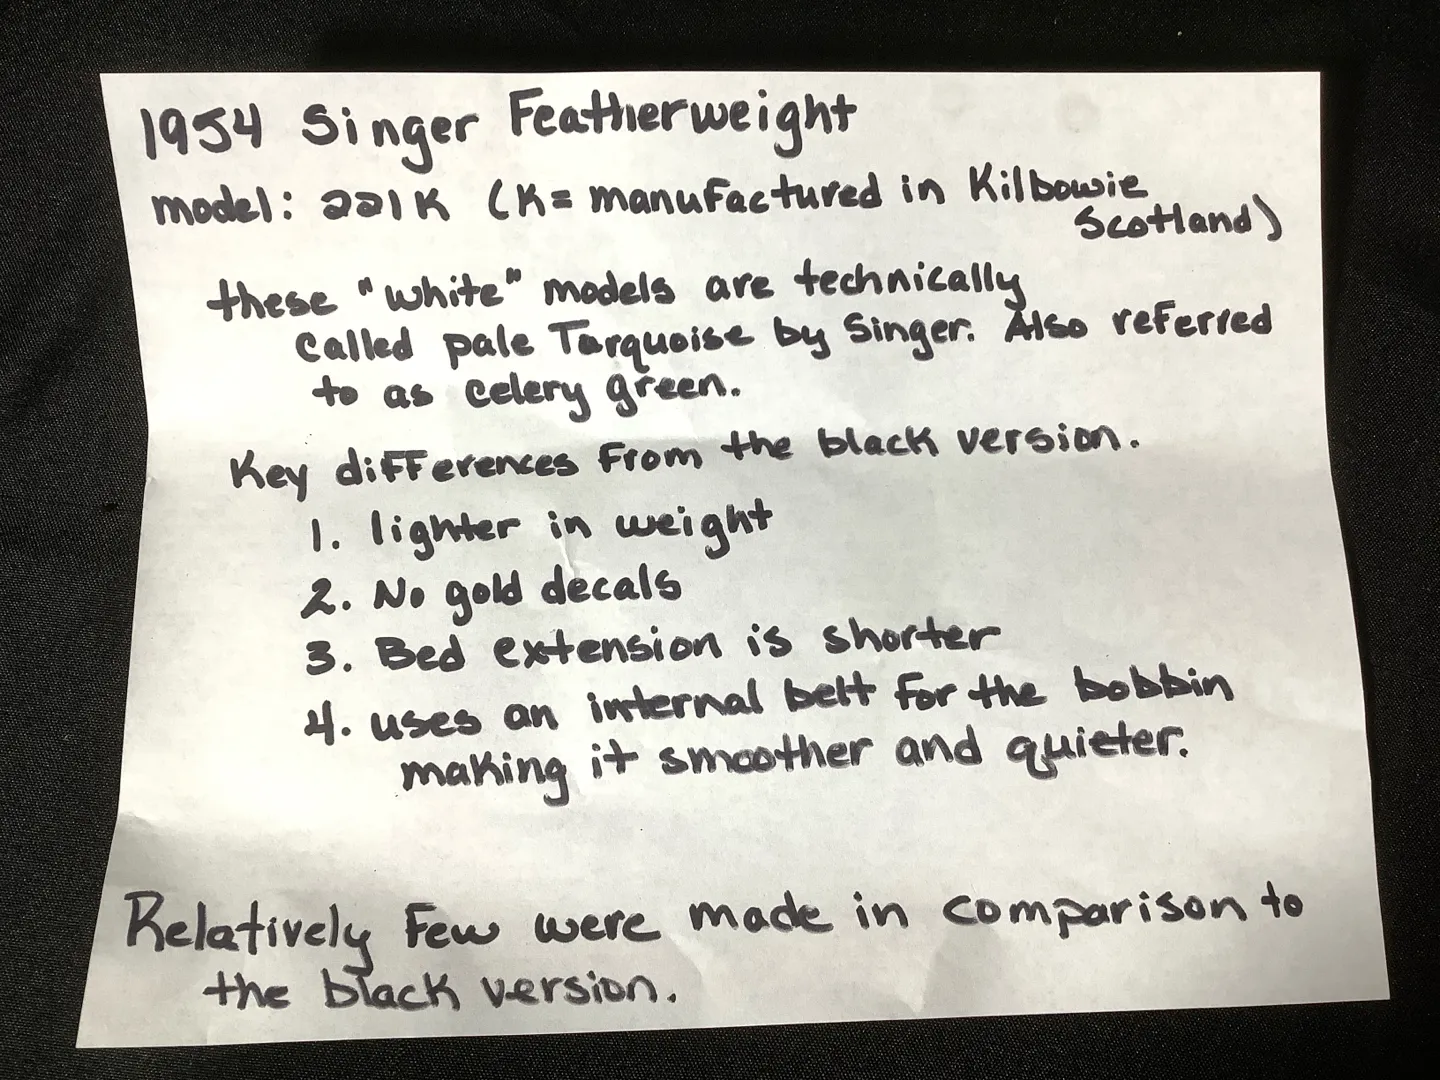 1954 Singer Featherweight
model: 221K (K= manufactured in Kilbowie
Scotland)
these "white" models are technically
called pale Turquoise by Singer. Also referred
to as celery green.
Key differences from the black version.
1. lighter in weight
2. No gold decals
3. Bed extension is shorter
4. uses an internal belt for the bobbin
making it smoother and quieter.
Relatively few were made in comparison to
the black version.